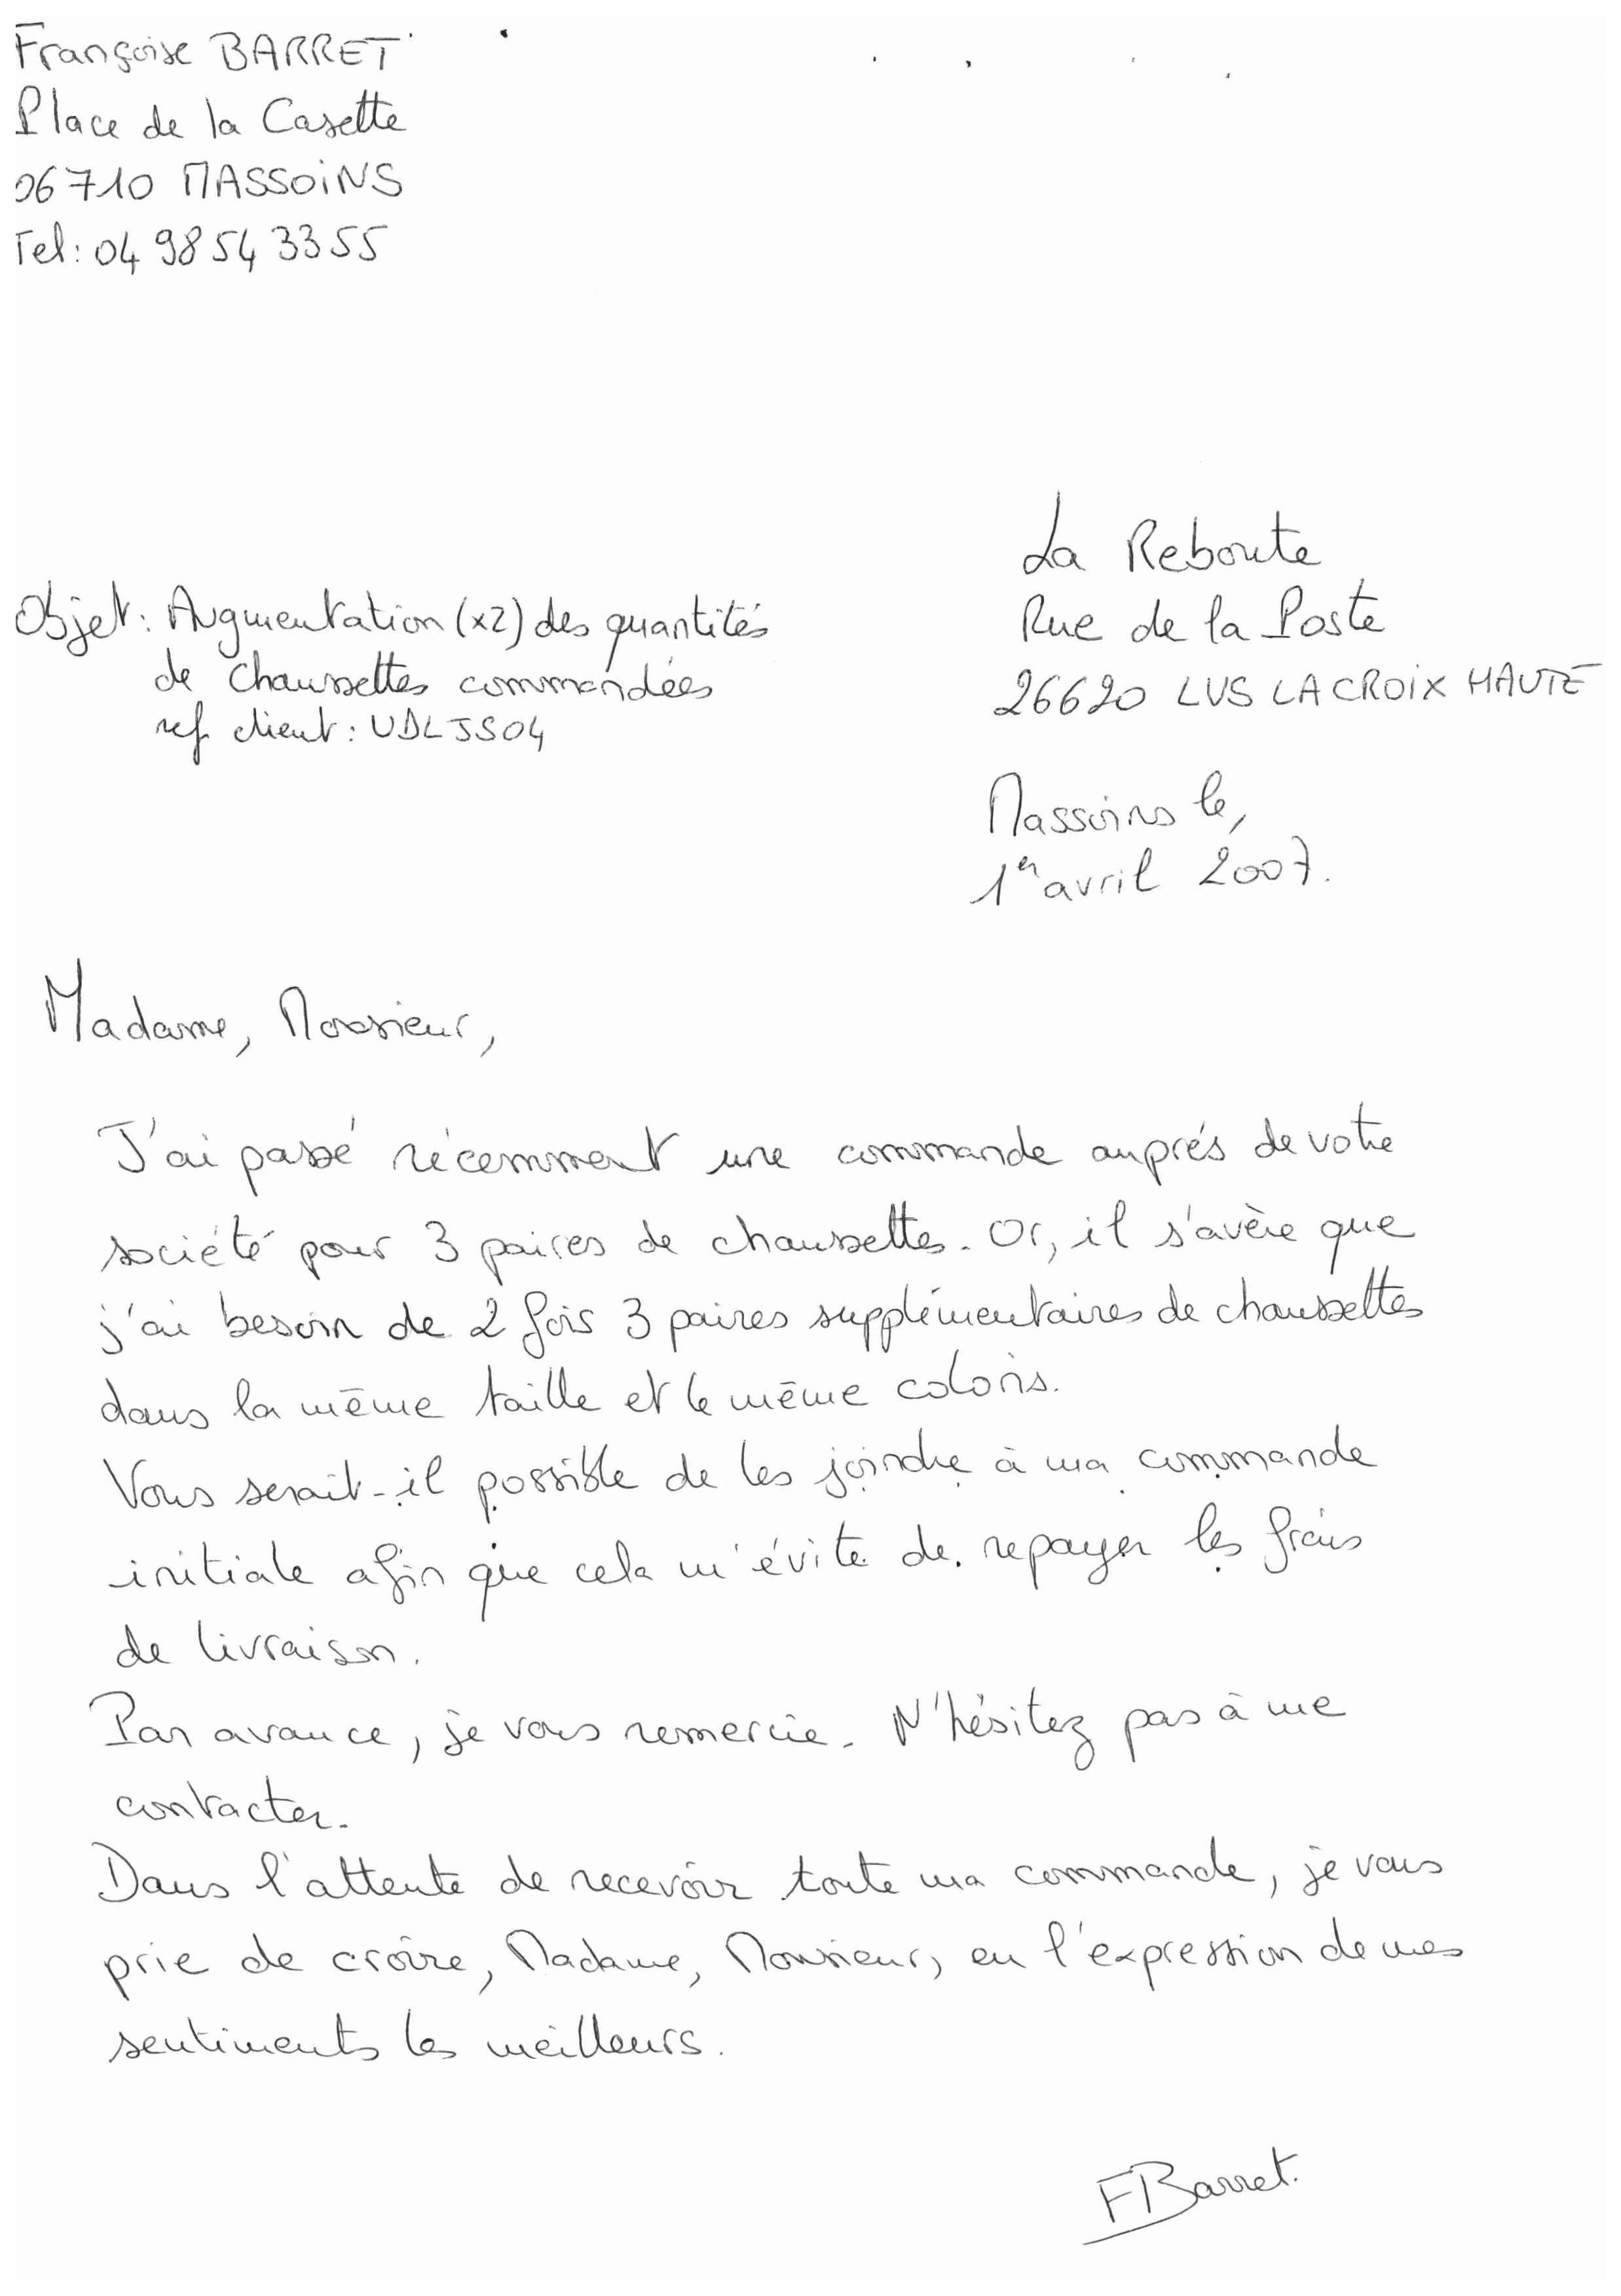 Françoise BARRET
Place de la Casette
06710 MASSOINS
Tel: 04 98 54 33 55
La Reboute
Rue de la Poste
26620 LUS LA CROIX HAUTE
Objet: Augmentation (x2) des quantités
de chaussettes commandées
ref client: UDLJS04
Massoins le,
1er avril 2007.
Madame, Monsieur,
J'ai passé récemment une commande auprés de votre
société pour 3 paires de chaussettes. Or, il s'avère que
j'ai besoin de 2 fois 3 paires supplémentaires de chaussettes
dans la même taille et le même coloris.
Vous serait-il possible de les joindre à ma commande
initiale afin que cela m'évite de repayer les frais
de livraison.
Par avance, je vous remercie. N'hésitez pas à me
contacter.
Dans l'attente de recevoir toute ma commande, je vous
prie de croire, Madame, Monsieur, en l'expression de mes
sentiments les meilleurs.
FBarret.